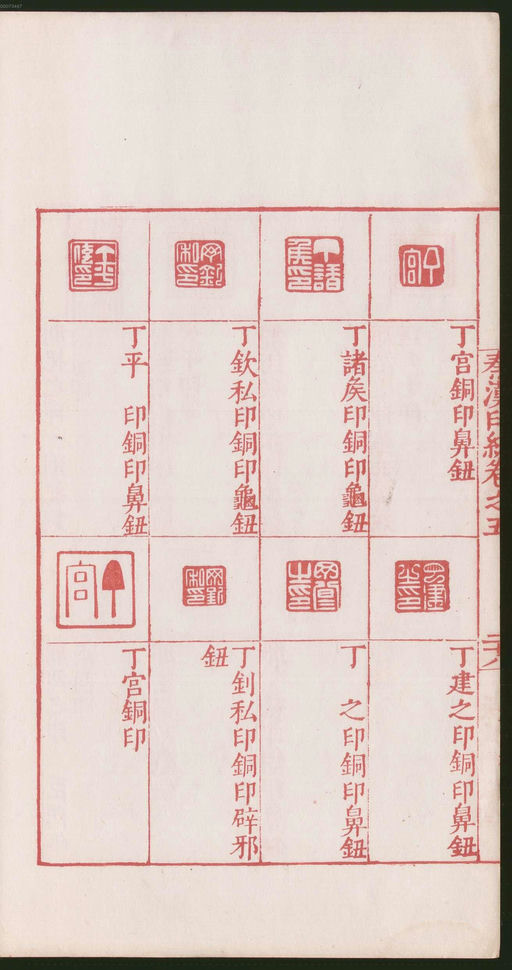 00073487
秦漢印統卷之五
二八
丁宮銅印鼻鈕
丁諸矦印銅印龜鈕
丁欽私印銅印龜鈕
丁平 印銅印鼻鈕
丁建之印銅印鼻鈕
丁 之印銅印鼻鈕
丁釗私印銅印辟邪
鈕
丁宮銅印